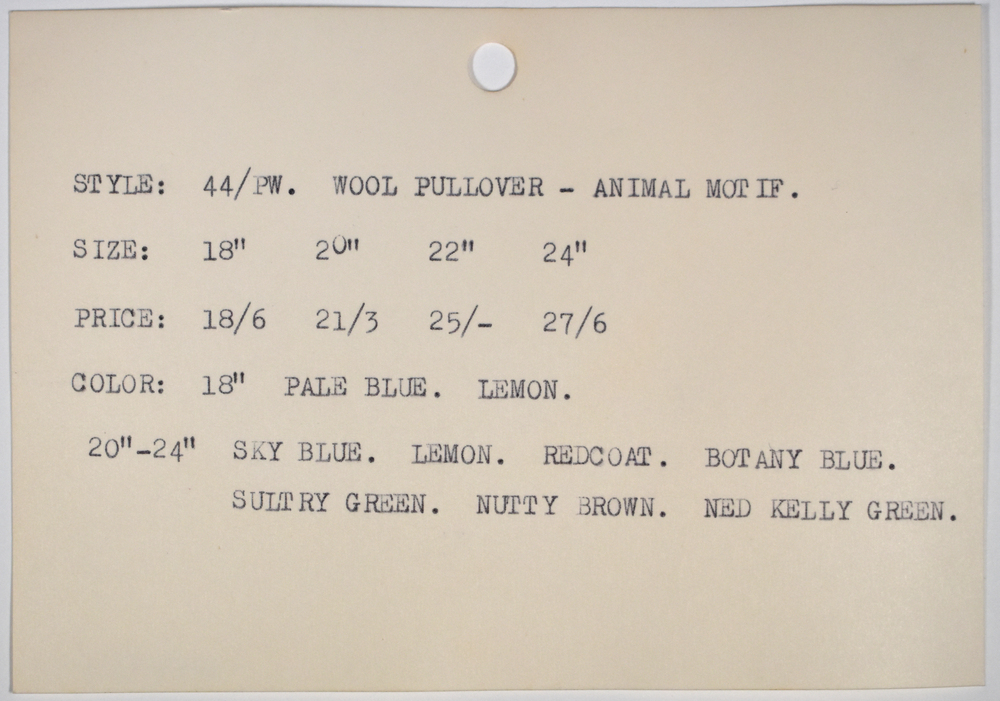 STYLE: 44/PW. WOOL PULLOVER - ANIMAL MOTIF.
SIZE: 18" 20" 22" 24"
PRICE: 18/6 21/3 25/- 27/6
COLOR: 18" PALE BLUE. LEMON.
20"-24" SKY BLUE. LEMON. REDCOAT. BOTANY BLUE.
SULTRY GREEN. NUTTY BROWN. NED KELLY GREEN.